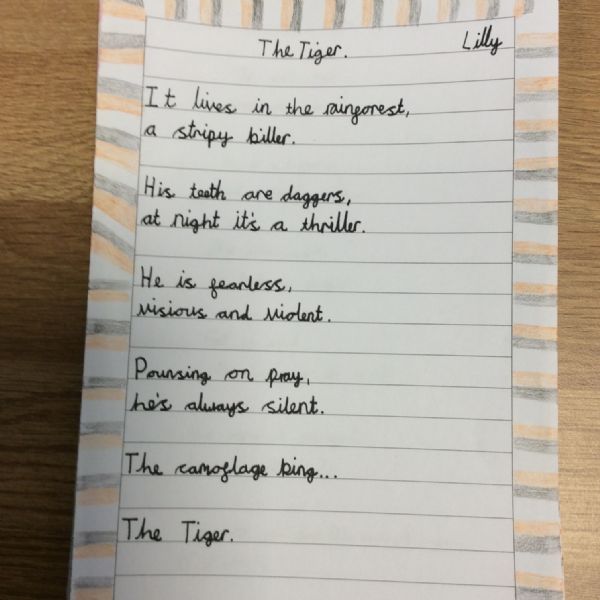 The Tiger.
Lilly
It lives in the rainforest,
a stripy killer.
His teeth are daggers,
at night it's a thriller.
He is fearless,
visious and violent.
Pounsing on pray,
he's always silent.
The camoflage king...
The Tiger.